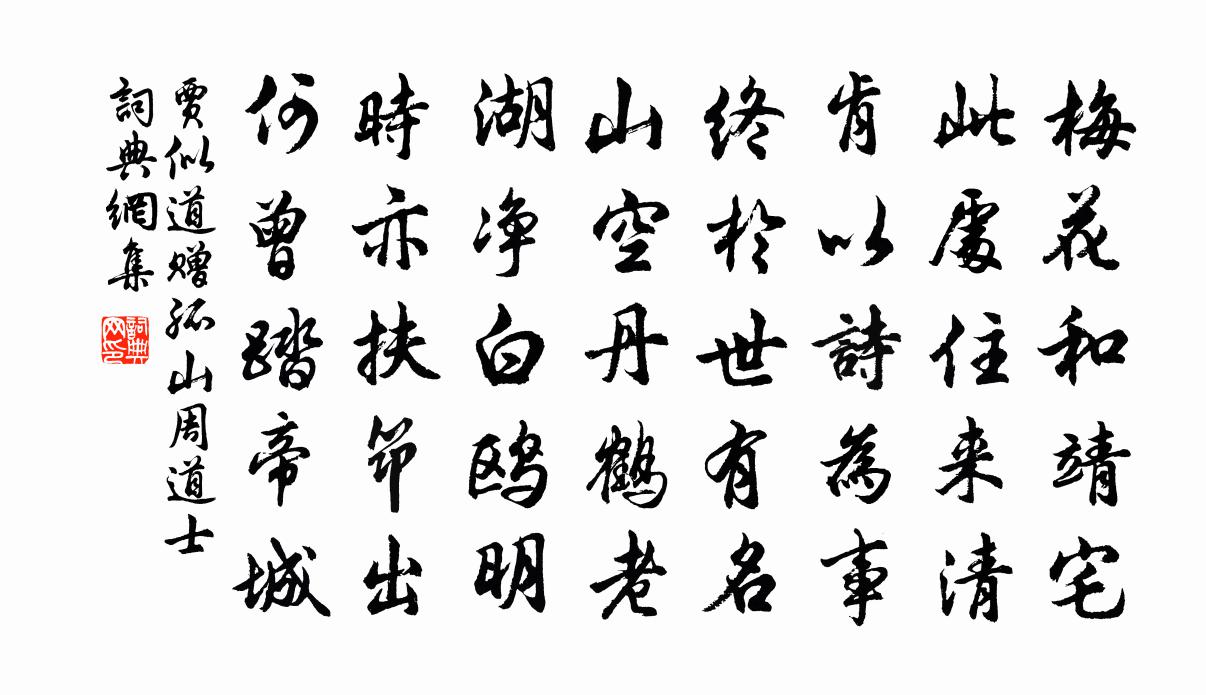 梅花和靖宅
此處住来清
肯以詩為事
終於世有名
山空丹鶴老
湖净白鸥明
時亦扶笻出
何曾踏帝城
賈似道贈孤山周道士
詞典網集
詞典网印